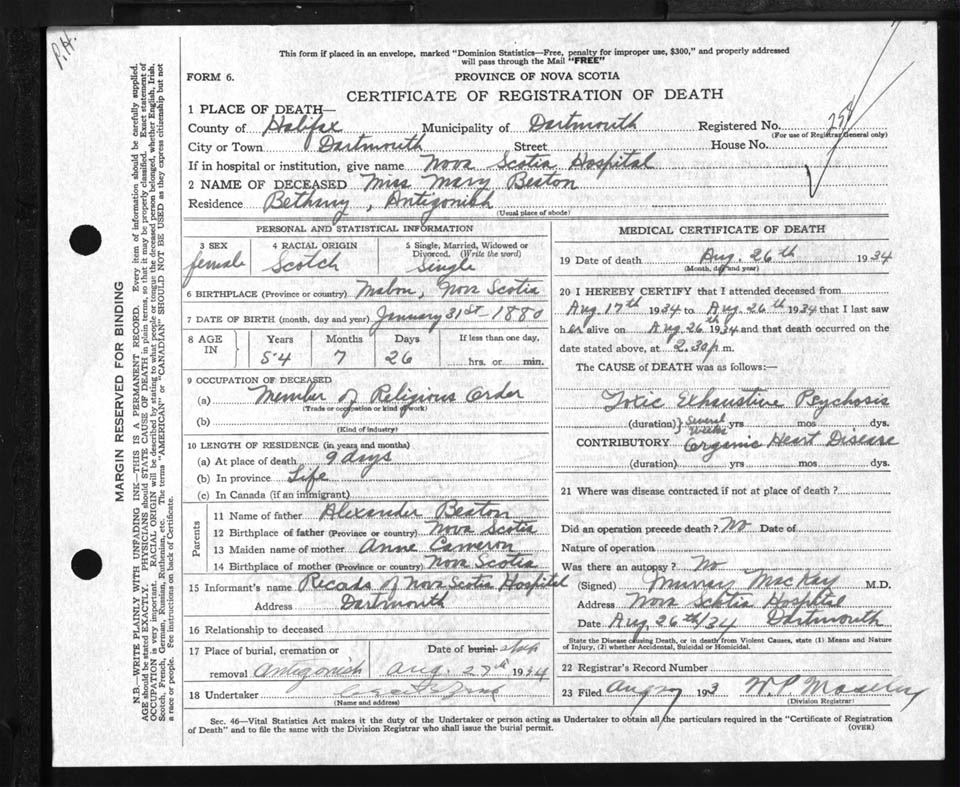 P.H.
This form if placed in an envelope, marked "Dominion Statistics—Free, penalty for improper use, $300," and properly addressed
will pass through the Mail "FREE"
FORM 6. PROVINCE OF NOVA SCOTIA
CERTIFICATE OF REGISTRATION OF DEATH
1 PLACE OF DEATH—
County of Halifax Municipality of Dartmouth Registered No.
(For use of Registrar General only)
City or Town Dartmouth Street House No.
If in hospital or institution, give name Nova Scotia Hospital
2 NAME OF DECEASED Miss Mary Beaton
Residence Bethany, Antigonish
(Usual place of abode)
PERSONAL AND STATISTICAL INFORMATION
3 SEX 4 RACIAL ORIGIN 5 Single, Married, Widowed or
Divorced. (Write the word)
female Scotch Single
6 BIRTHPLACE (Province or country) Mabou, Nova Scotia
7 DATE OF BIRTH (month, day and year) January 31st 1880
8 AGE IN Years Months Days If less than one day,
54 7 26 hrs. or min.
9 OCCUPATION OF DECEASED
(a) Member of Religious Order
(Trade or occupation or kind of work)
(b)
(Kind of industry)
10 LENGTH OF RESIDENCE (in years and months)
(a) At place of death 9 days
(b) In province Life
(c) In Canada (if an immigrant)
Parents
11 Name of father Alexander Beaton
12 Birthplace of father (Province or country) Nova Scotia
13 Maiden name of mother Anne Cameron
14 Birthplace of mother (Province or country) Nova Scotia
15 Informant's name Records of Nova Scotia Hospital
Address Dartmouth
16 Relationship to deceased
17 Place of burial, cremation or Date of burial
removal Antigonish Aug. 27th 1934
18 Undertaker
(Name and address)
MEDICAL CERTIFICATE OF DEATH
19 Date of death Aug. 26th 1934
(Month, day and year)
20 I HEREBY CERTIFY that I attended deceased from
Aug 17th 1934 to Aug 26th 1934 that I last saw
her alive on Aug 26th 1934 and that death occurred on the
date stated above, at 2.30 p.m.
The CAUSE of DEATH was as follows:—
Toxic Exhaustive Psychosis
(duration) Several weeks yrs mos dys.
CONTRIBUTORY Organic Heart Disease
(duration) yrs mos dys.
21 Where was disease contracted if not at place of death?
Did an operation precede death? No Date of
Nature of operation
Was there an autopsy? No
(Signed) Murray MacKay M.D.
Address Nova Scotia Hospital
Date Aug 26th/34 Dartmouth
State the Disease causing Death, or in death from Violent Causes, state (1) Means and Nature
of Injury, (2) whether Accidental, Suicidal or Homicidal.
22 Registrar's Record Number
23 Filed Aug 27 193 W P Moseley
(Division Registrar)
Sec. 46—Vital Statistics Act makes it the duty of the Undertaker or person acting as Undertaker to obtain all the particulars required in the "Certificate of Registration
of Death" and to file the same with the Division Registrar who shall issue the burial permit. (OVER)
MARGIN RESERVED FOR BINDING
N.B.—WRITE PLAINLY WITH UNFADING INK—THIS IS A PERMANENT RECORD. Every item of information should be carefully supplied.
AGE should be stated EXACTLY. PHYSICIANS should STATE CAUSE OF DEATH in plain terms, so that it may be properly classified. Exact statement of
OCCUPATION is very important. RACIAL ORIGIN will be described by stating to what people or tongue the deceased person belonged, whether English, Irish,
Scotch, French, German, Russian, Ruthenian, etc. The terms "AMERICAN" or "CANADIAN" SHOULD NOT BE USED as they express citizenship but not
a race or people. Fee instructions on back of Certificate.